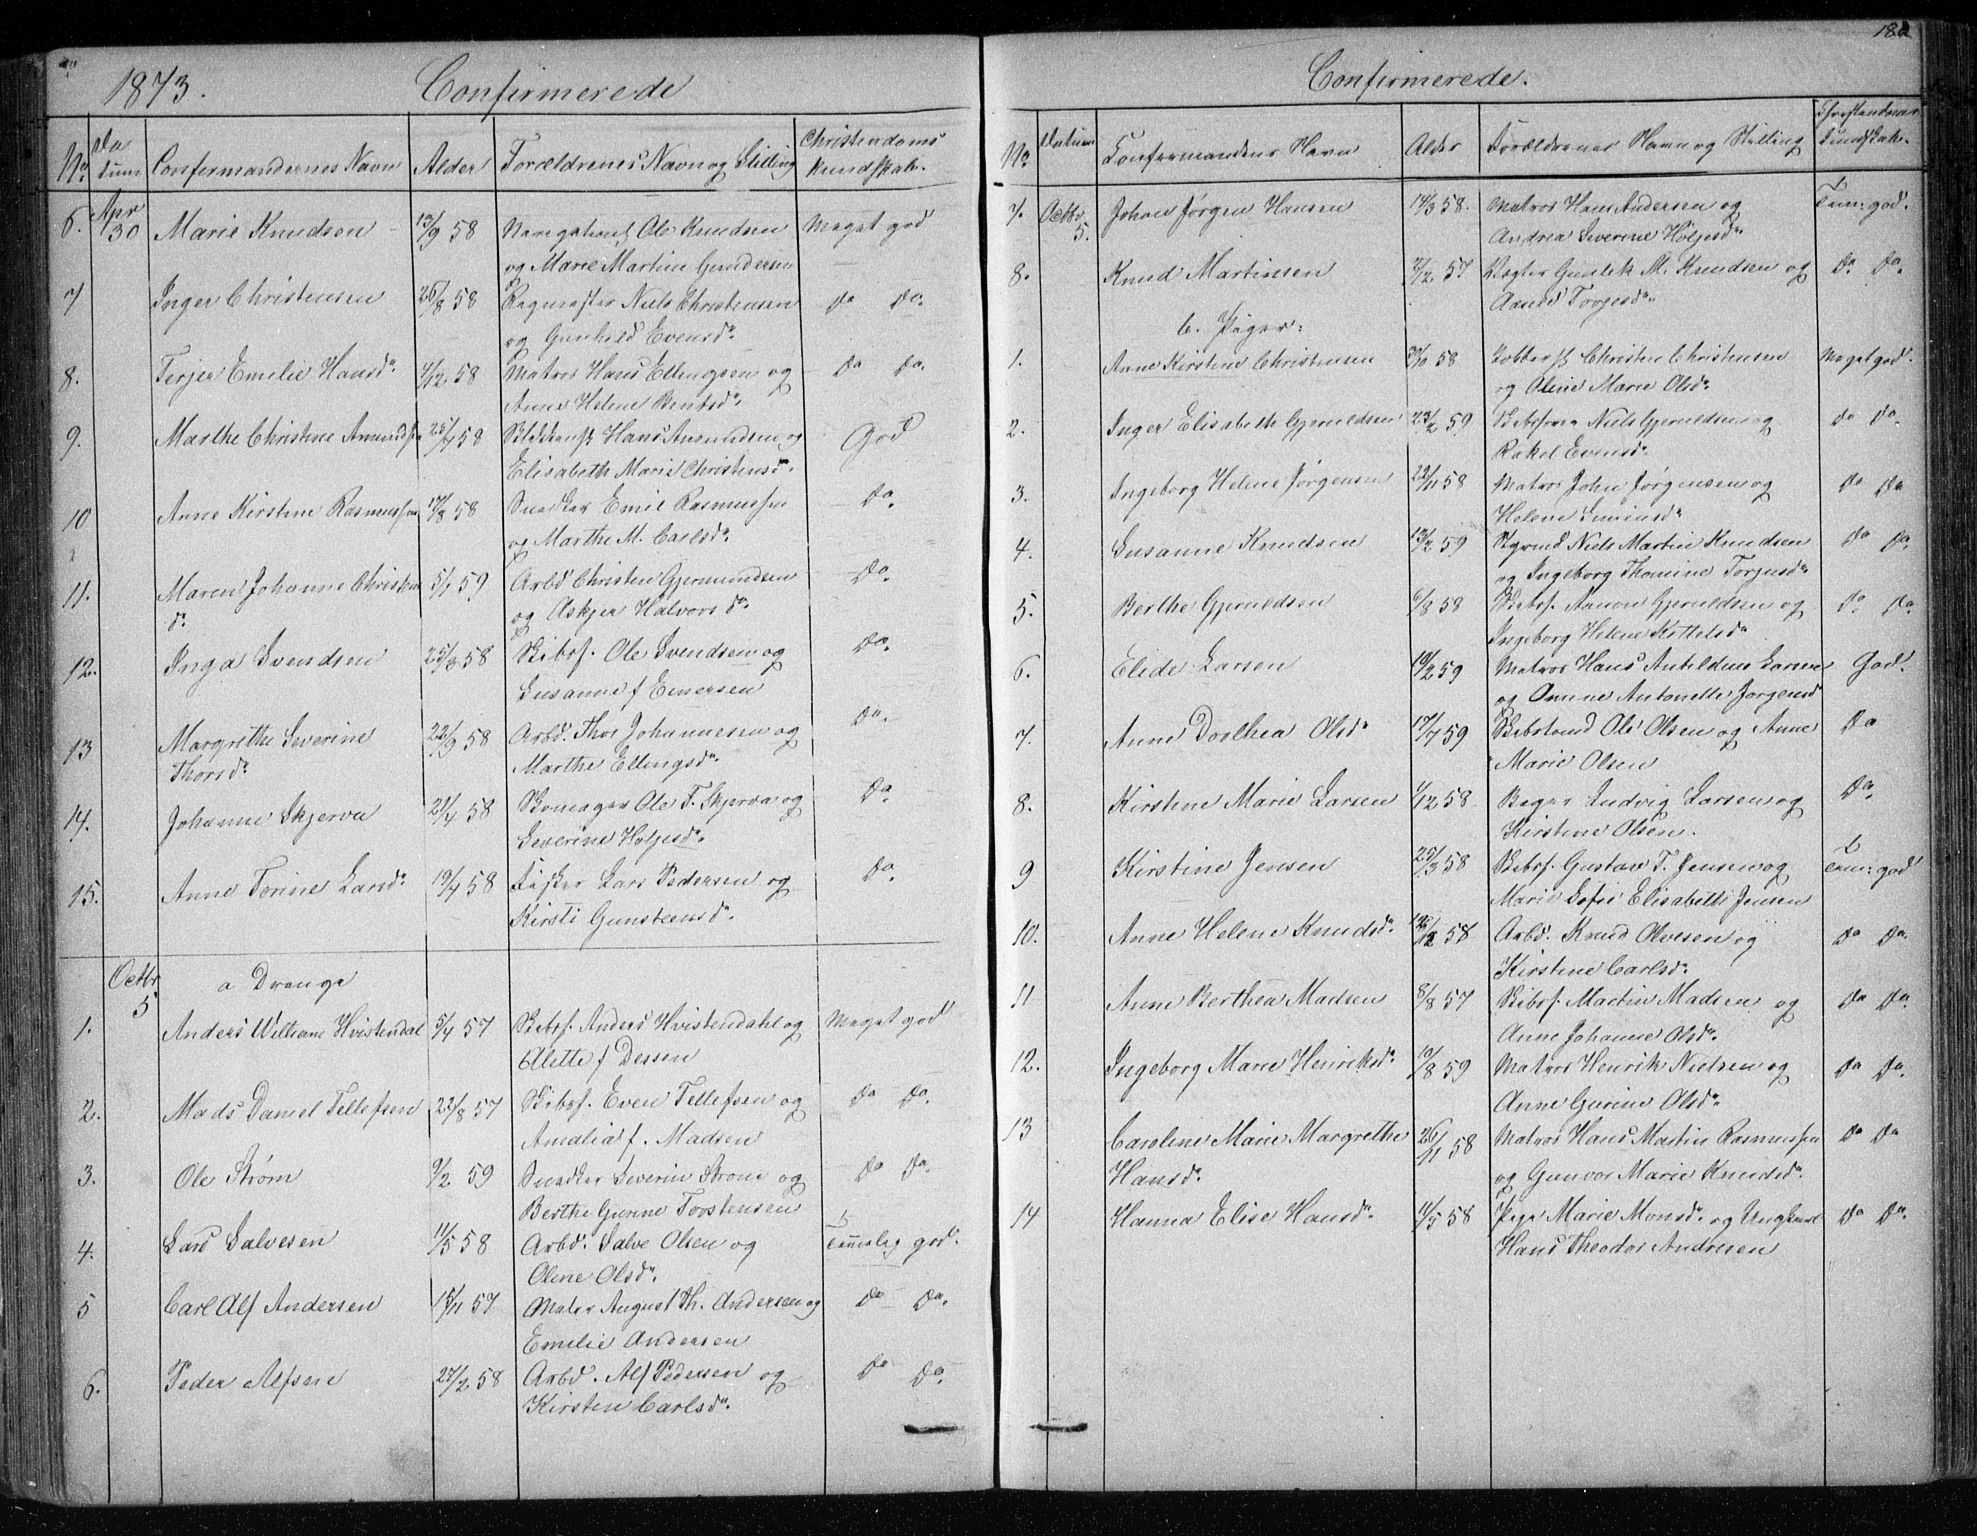 1873. Confirmerede
No Datum Confirmandernes Navn Alder Forældrenes Navn og Stilling Christendoms kundskab.
6. Apr 30 Marie Knudsen 13/9 58 Ole Knudsen Meget god
og Marie Martine Gundersen
7 Inger Christensen 26/8 58 Niels Christensen do do.
og Gunhild Evensd.
8. Terjer Emelie Hansd. 4/12 58 Matros Hans Ellingsen og do do.
Anne Helene Bentsd.
9. Marthe Christine Amundsen 58 Hans Amundsen og God
Elisabeth Marie Christensd.
10 Anne Kirstine Rasmussen 17/8 58 Snedker Emil Rasmussen do.
og Marthe M. Carlsd.
11. Maren Johanne Christens 5/7 59 Arbd Christen Gjermundsen do.
d. og Askjer Halvorsd.
12. Inga Svendsen 58 Skibsf. Ole Svendsen og do.
Susanne f Einersen
13 Margrethe Severine 22/9 58 Arbd. Thor Johannesen og do.
Thorsd. Marthe Ellingsd.
14. Johanne Skjerva 21/4 58 Ole T. Skjerva og do.
Severine Holjesd.
15. Anne Torine Larsd. 19/4 58 Fisker Lars Pedersen og do.
Kirsti Gunsteensd.
Octbr 5 a Drenge
1. Anders William Hvistendal 5/4 57 Skibsf. Anders Hvistendahl og Meget god
Alette f Dessen
2. Mads Daniel Tellefsen 22/8 57 Skibsf. Even Tellefsen og do do.
Amalia f. Madsen
3. Ole Strøm 9/2 59 Snedker Severin Strøm og do do.
Berthe Gurine Torstensen
4. Lars Salvesen 11/5 58 Arbd. Salve Olsen og Temmelig god.
Olene Olsd.
5 Carl Alf Andersen 15/11 57 Maler August Th. Andersen og do do.
Emelie Andersen
6. Peder Alfsen 27/2 58 Arbd. Alf Pedersen og do do.
Kirsten Carlsd.
182
Confirmerede.
No Datum Confirmandens Navn Alder Forældrenes Navn og Stilling Christendoms kundskab.
7. Octbr 5. Johan Jørgen Hansen 14/3 58. Matros Hans Andersen og Tem: god.
Andrea Severine Holjesd.
8. Knud Martinsen 57 Gunlek M. Knudsen og do do.
Aasne Torjesd.
b. Piger:
1. Anne Kirstine Christensen 58 Christen Christensen Meget god.
og Olene Marie Olsd.
2. Inger Elisabeth Gjeruldsen 23/2 59 Skibsf. Niels Gjeruldsen og do do.
Rakel Evensd.
3. Ingeborg Helene Jørgensen 22/11 58 Matros John Jørgensen og do do
Helene Simensd.
4. Susanne Knudsen 13/2 59 Styrmd Niels Martin Knudsen do do.
og Ingeborg Thomine Torjusd.
5. Berthe Gjeruldsen 6/8 58 Skibsf. Aanon Gjeruldsen og do do.
Ingeborg Helene Kittelsd.
6. Elide Larsen 19/2 59 Matros Hans Larsen God.
og Anne Antonette Jørgensd
7. Anne Dorthea Olsd. 17/7 59 Ole Olsen og Anne do
Marie Olsen
8. Kirstine Marie Larsen 1/12 58. Bager Ludvig Larsen og do.
Kirstine Olsen.
9 Kirstine Jensen 25/3 58 Skibsf. Gustav T. Jensen og Tem: god
Marie Sofie Elisabeth Jensen
10. Anne Helene Knudsd. 58 Arbd. Knud Olvesen og do do.
Kirstine Carlsd.
11 Anne Berthea Madsen 8/8 57 Skibsf. Martin Madsen og do do.
Anne Johanne Olsd.
12. Ingeborg Marie Henriksd. 10/8 59 Matros Henrik Nielsen og do do.
Anne Gurine Olsd.
13 Caroline Marie Margrethe 26/11 58 Matros Hans Martin Rasmussen do do
Hansd. og Gunvor Marie Knudsd.
14 Hanna Elise Hansd. 11/5 58 Pige Marie Monsd. og Ungkarl do do.
Hans Theodor Andresen